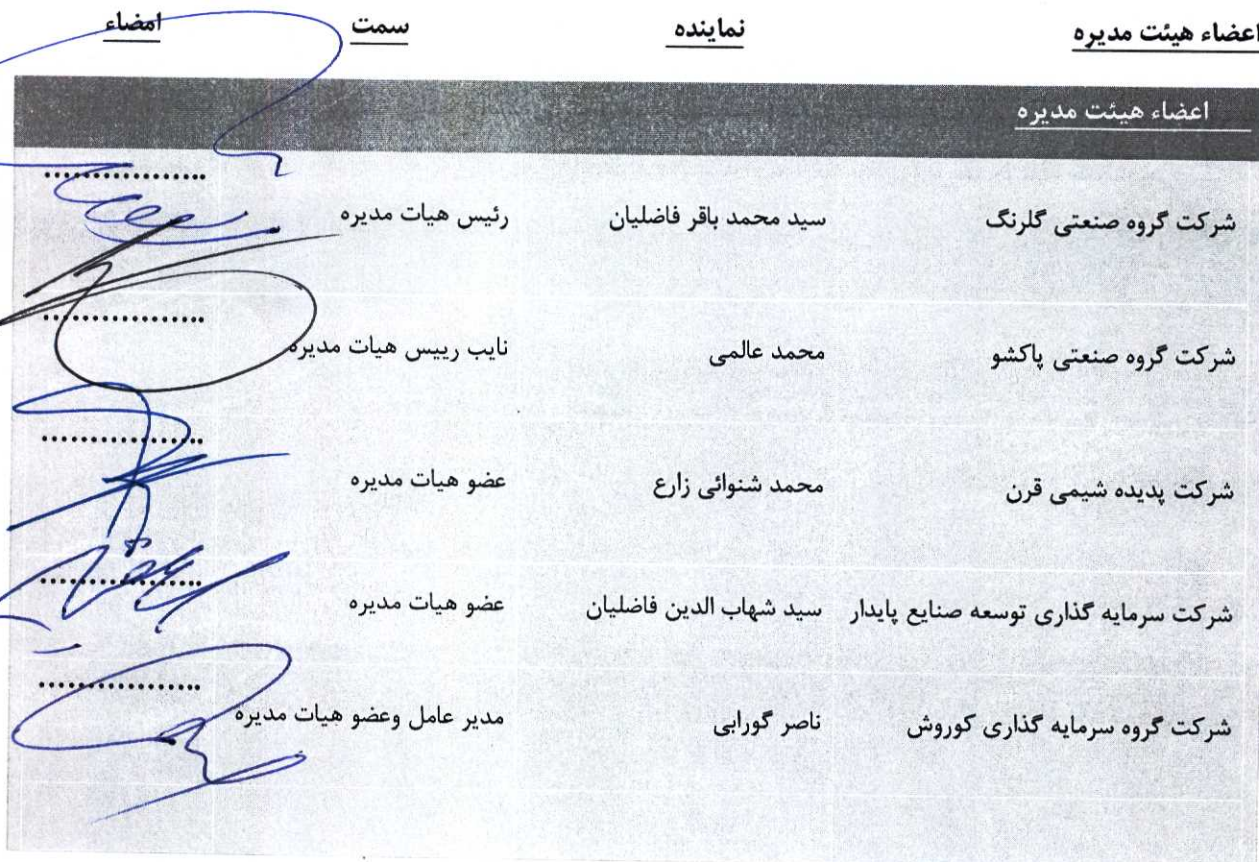 اعضاء هیئت مدیره نماینده سمت امضاء
اعضاء هیئت مدیره
شرکت گروه صنعتی گلرنگ سید محمد باقر فاضلیان رئیس هیات مدیره ................
شرکت گروه صنعتی پاکشو محمد عالمی نایب رییس هیات مدیره ................
شرکت پدیده شیمی قرن محمد شنوائی زارع عضو هیات مدیره ................
شرکت سرمایه گذاری توسعه صنایع پایدار سید شهاب الدین فاضلیان عضو هیات مدیره ................
شرکت گروه سرمایه گذاری کوروش ناصر گورابی مدیر عامل وعضو هیات مدیره ................